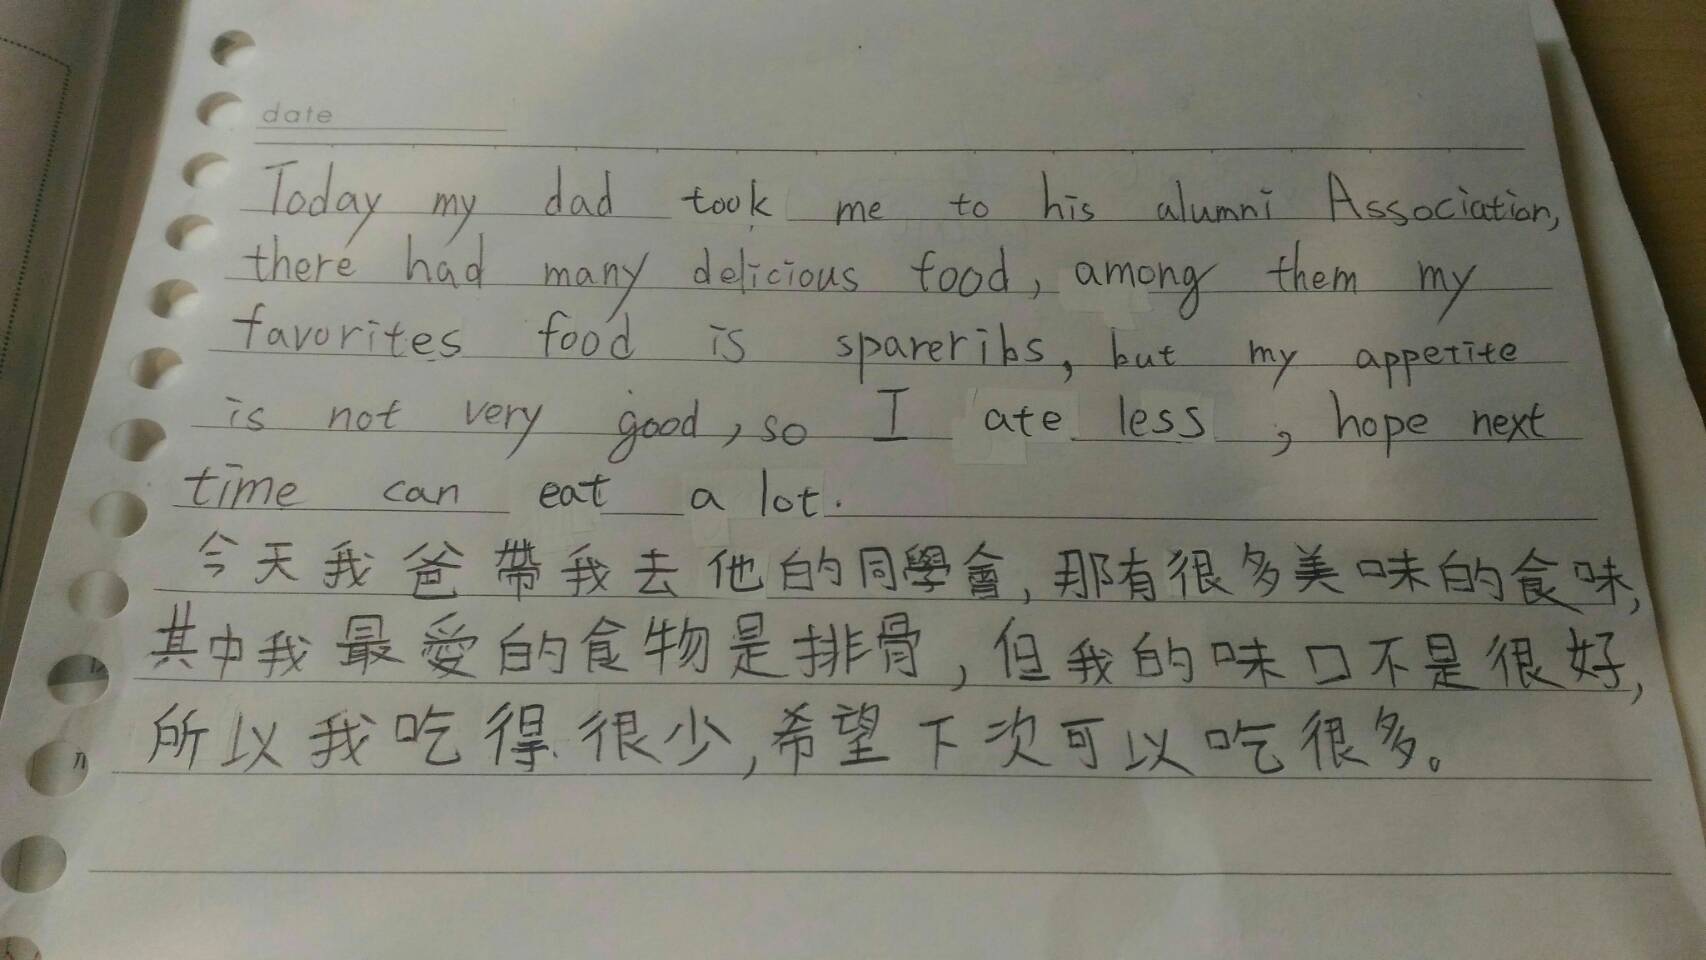 date
Today my dad took me to his alumni Association,
there had many delicious food, among them my
favorites food is spareribs, but my appetite
is not very good, so I ate less, hope next
time can eat a lot.
今天我爸帶我去他的同學會,那有很多美味的食味,
其中我最愛的食物是排骨,但我的味口不是很好,
所以我吃得很少,希望下次可以吃很多。